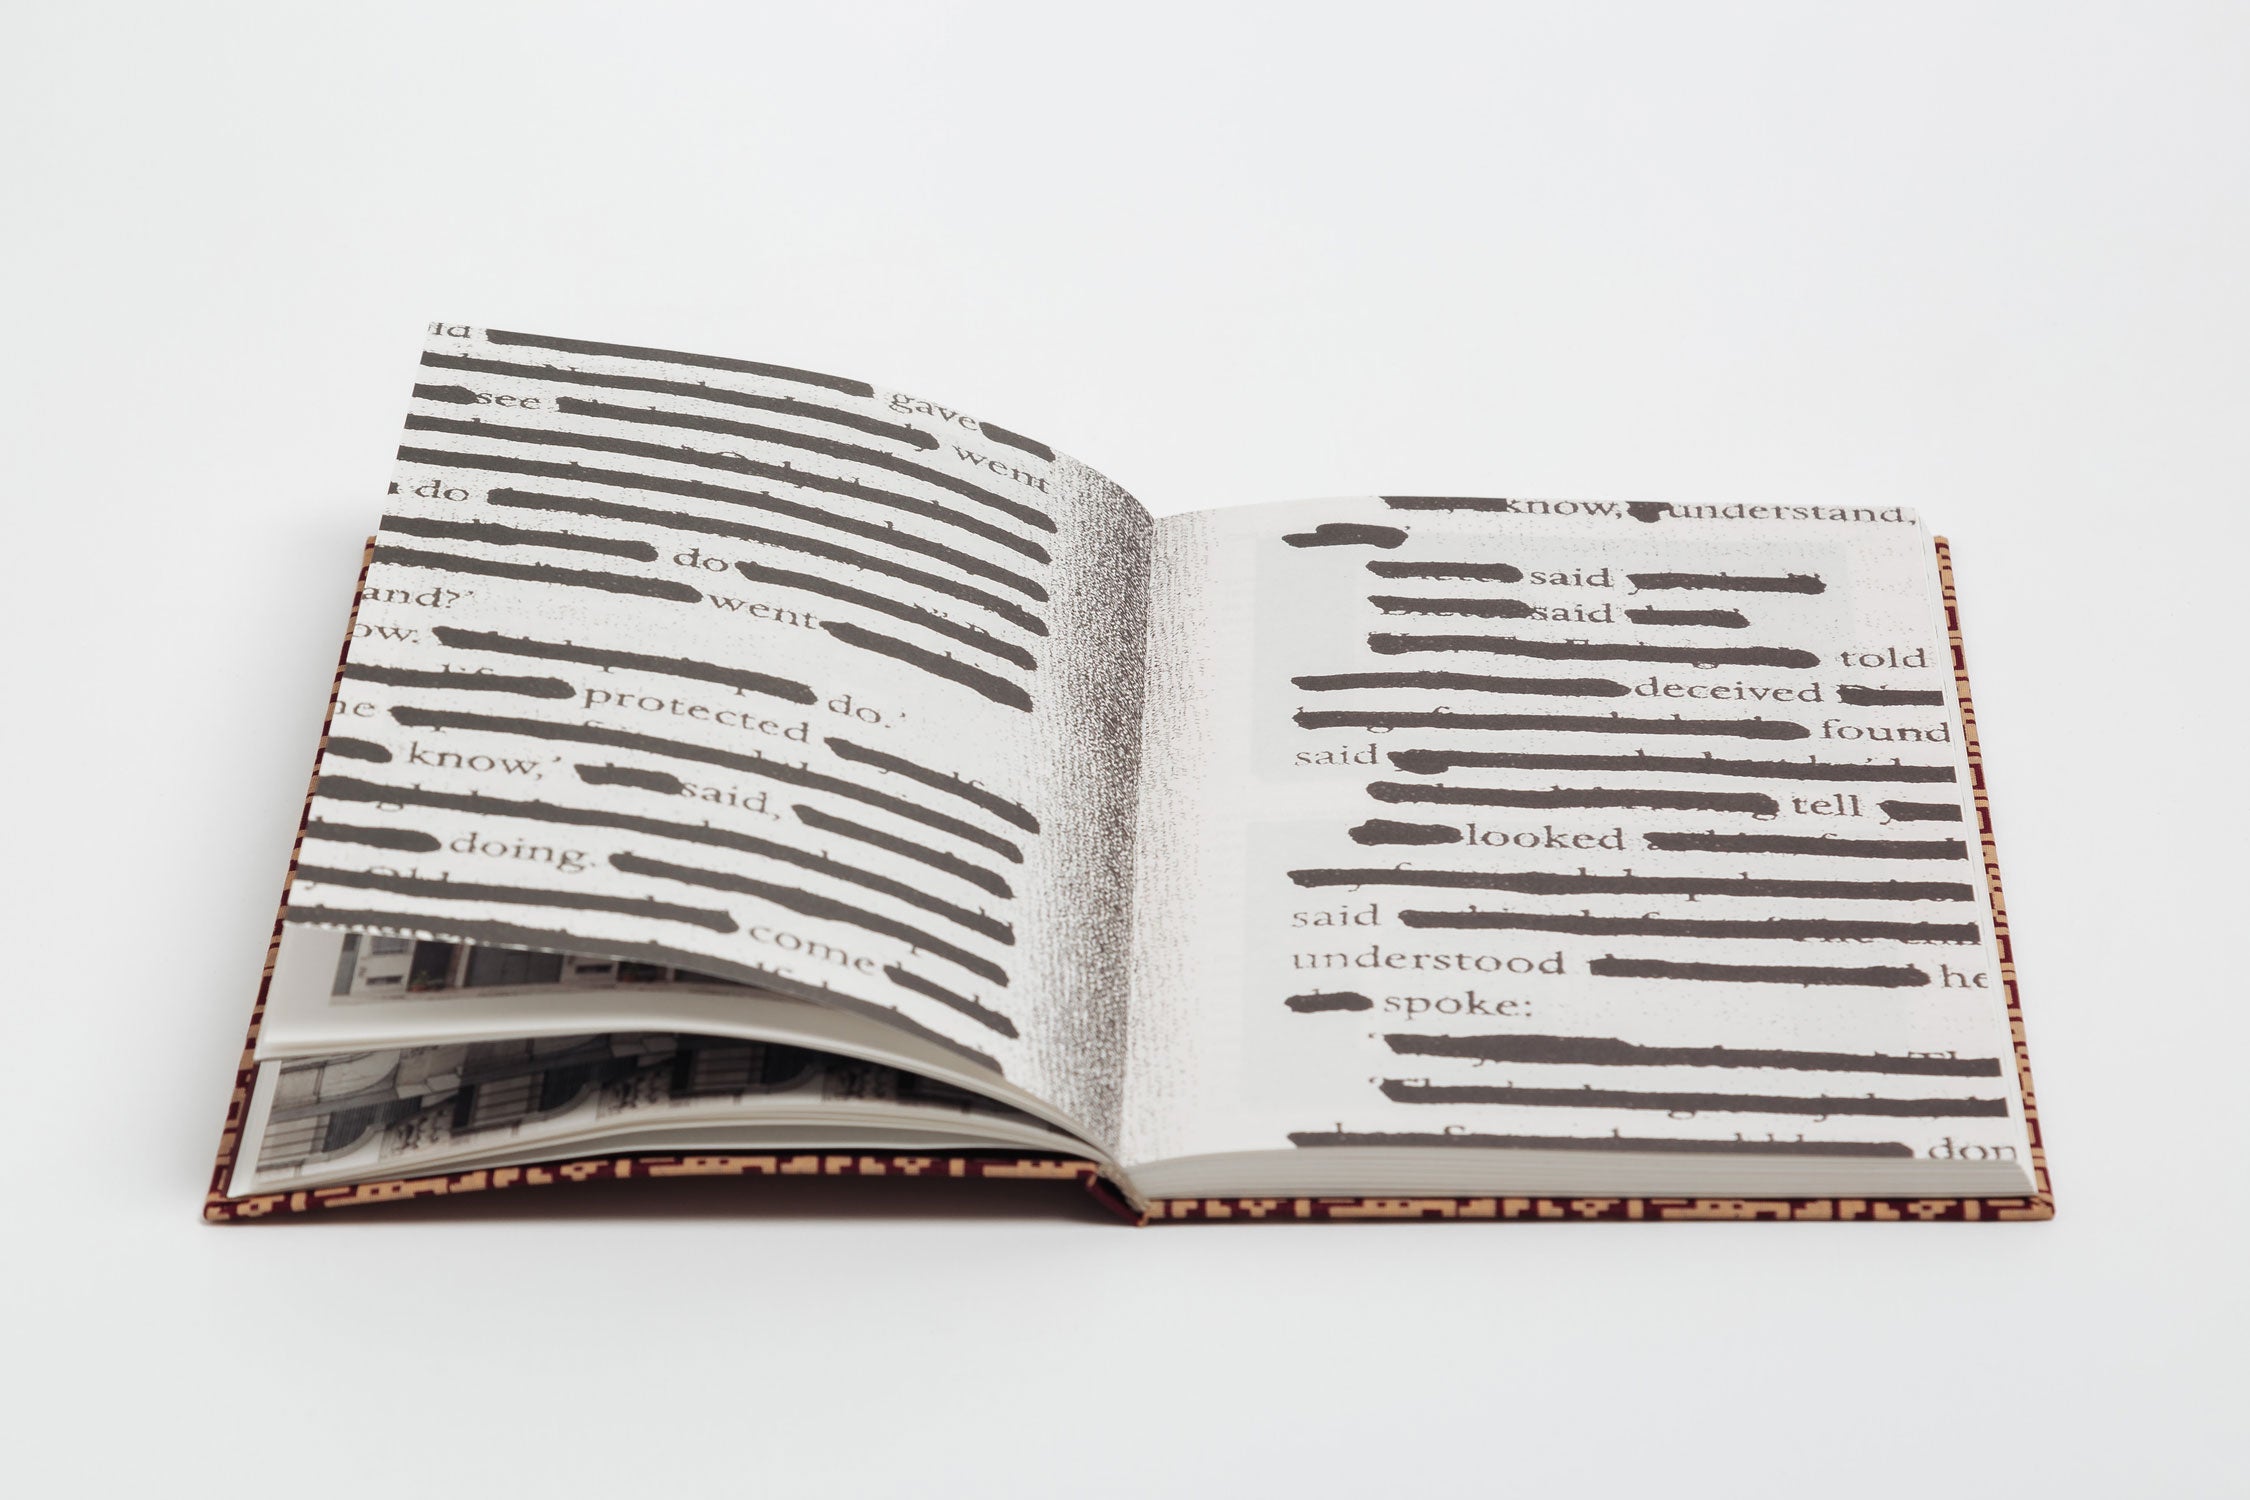 gave
went
see
do
do
went
and?'
ow. do.'
protected
know,' said,
doing.
come
know, understand,
said
said
told
deceived
found
said
tell
looked
said
understood he
spoke:
don